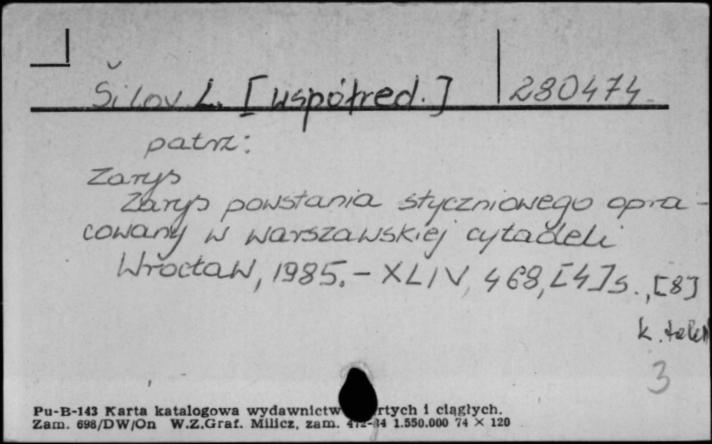 Šilov L. [współred.] 280474
patrz:
Zarys
Zarys powstania styczniowego opra-
cowany w warszawskiej cytadeli
Wrocław, 1985. - XLIV, 468, [4] s., [8]
k. tabl
3
Pu-B-143 Karta katalogowa wydawnictw rtych i ciągłych.
Zam. 698/DW/On W.Z.Graf. Milicz, zam. 1.550.000 74 × 120